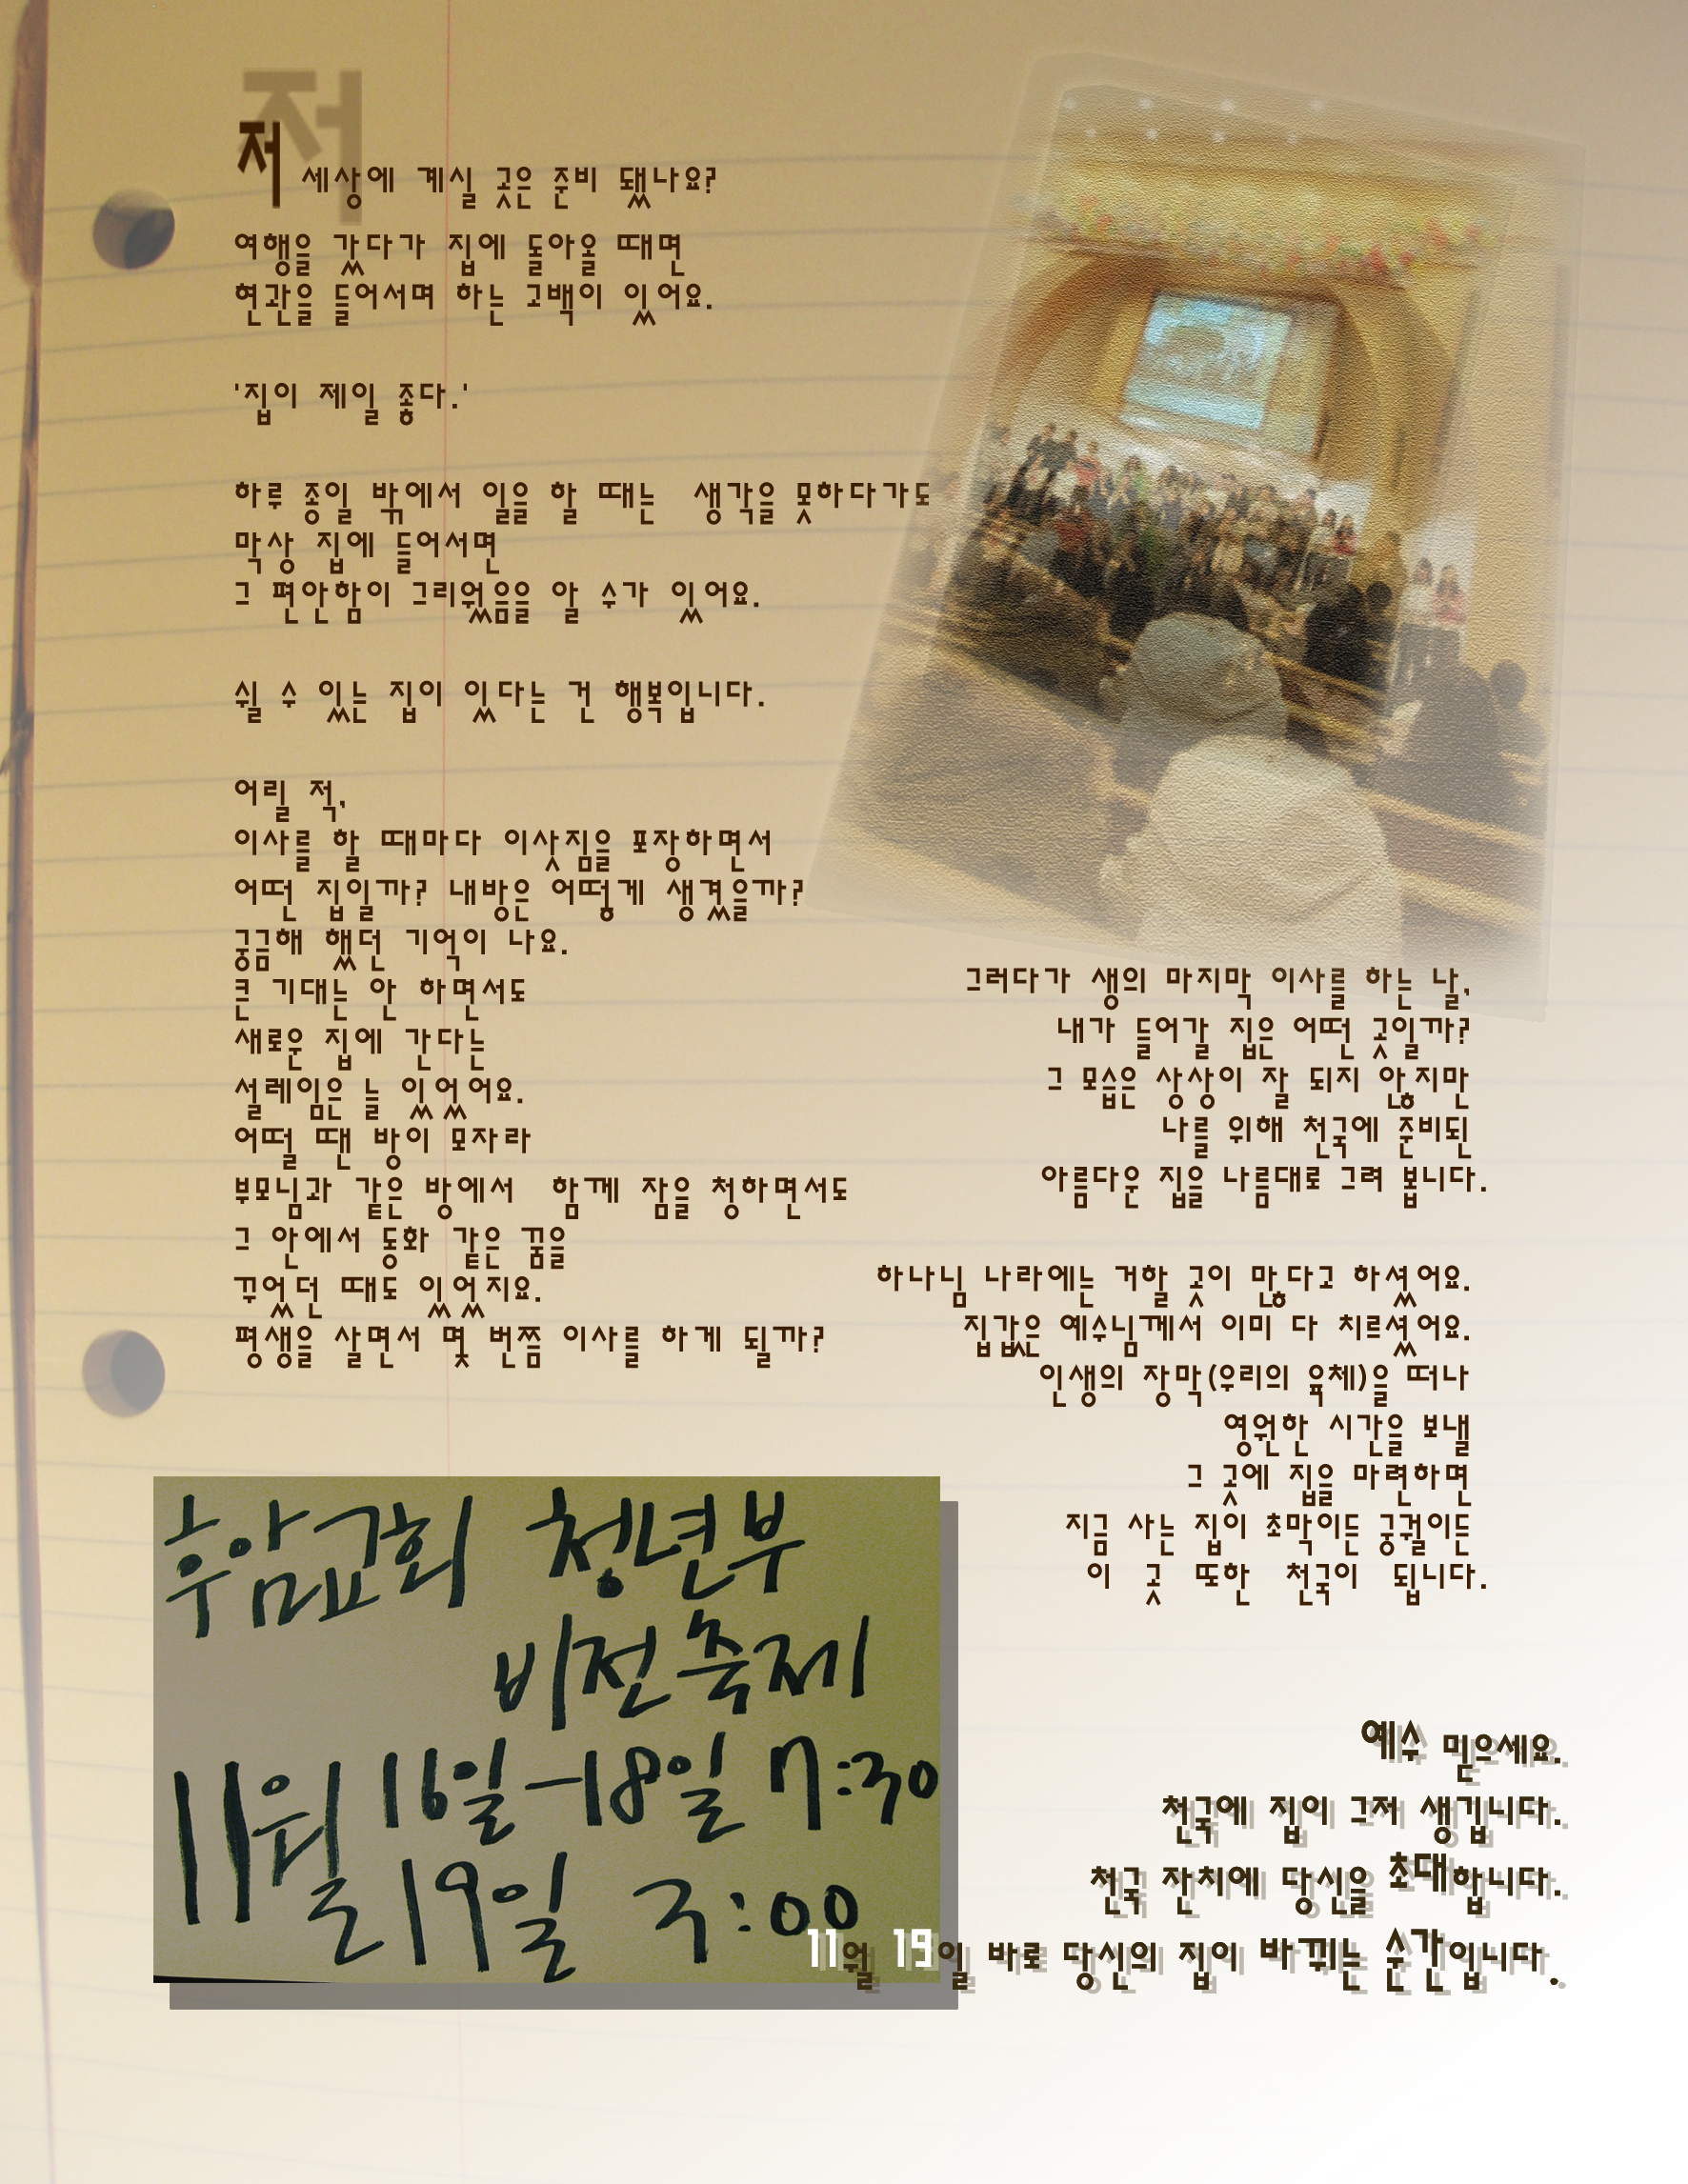 저 세상에 계실 곳은 준비 됐나요?
여행을 갔다가 집에 돌아올 때면
현관을 들어서며 하는 고백이 있어요.
'집이 제일 좋다.'
하루 종일 밖에서 일을 할 때는 생각을 못하다가도
막상 집에 들어서면
그 편안함이 그리웠음을 알 수가 있어요.
쉴 수 있는 집이 있다는 건 행복입니다.
어릴 적,
이사를 할 때마다 이삿짐을 포장하면서
어떤 집일까? 내방은 어떻게 생겼을까?
궁금해 했던 기억이 나요.
큰 기대는 안 하면서도
새로운 집에 간다는
설레임은 늘 있었어요.
어떨 땐 방이 모자라
부모님과 같은 방에서 함께 잠을 청하면서도
그 안에서 동화 같은 꿈을
꾸었던 때도 있었지요.
평생을 살면서 몇 번쯤 이사를 하게 될까?
그러다가 생의 마지막 이사를 하는 날,
내가 들어갈 집은 어떤 곳일까?
그 모습은 상상이 잘 되지 않지만
나를 위해 천국에 준비된
아름다운 집을 나름대로 그려 봅니다.
하나님 나라에는 거할 곳이 많다고 하셨어요.
집값은 예수님께서 이미 다 치르셨어요.
인생의 장막(우리의 육체)을 떠나
영원한 시간을 보낼
그 곳에 집을 마련하면
지금 사는 집이 초막이든 궁궐이든
이 곳 또한 천국이 됩니다.
후암교회 청년부
비전축제
11월 16일-18일 7:30
19일 3:00
예수 믿으세요.
천국에 집이 그저 생깁니다.
천국 잔치에 당신을 초대합니다.
11월 19일 바로 당신의 집이 바뀌는 순간입니다.